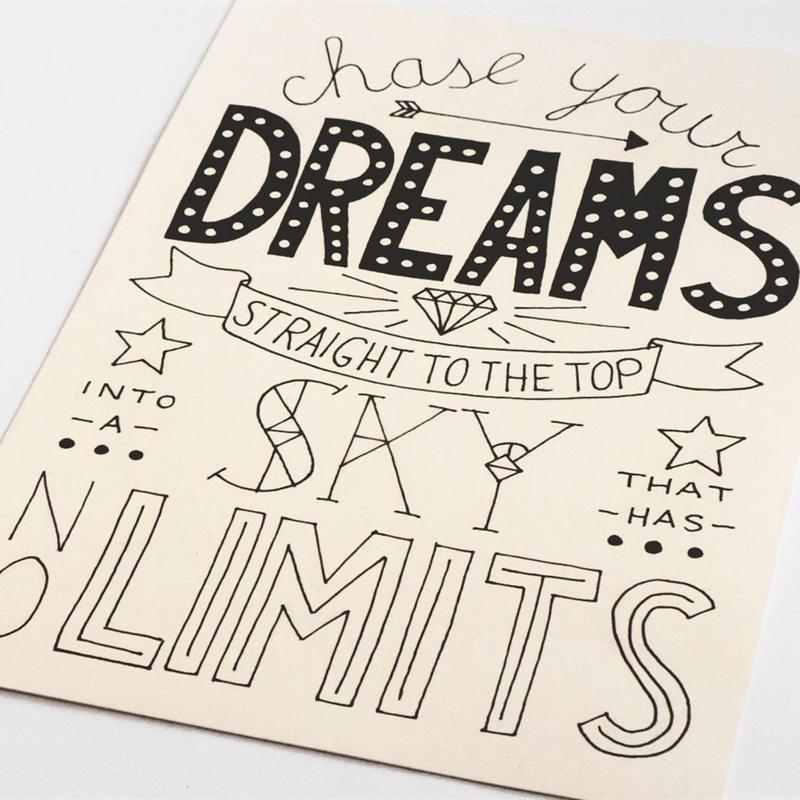 chase your
DREAMS
STRAIGHT TO THE TOP
INTO
-A-
SKY
THAT
-HAS-
NO
LIMITS